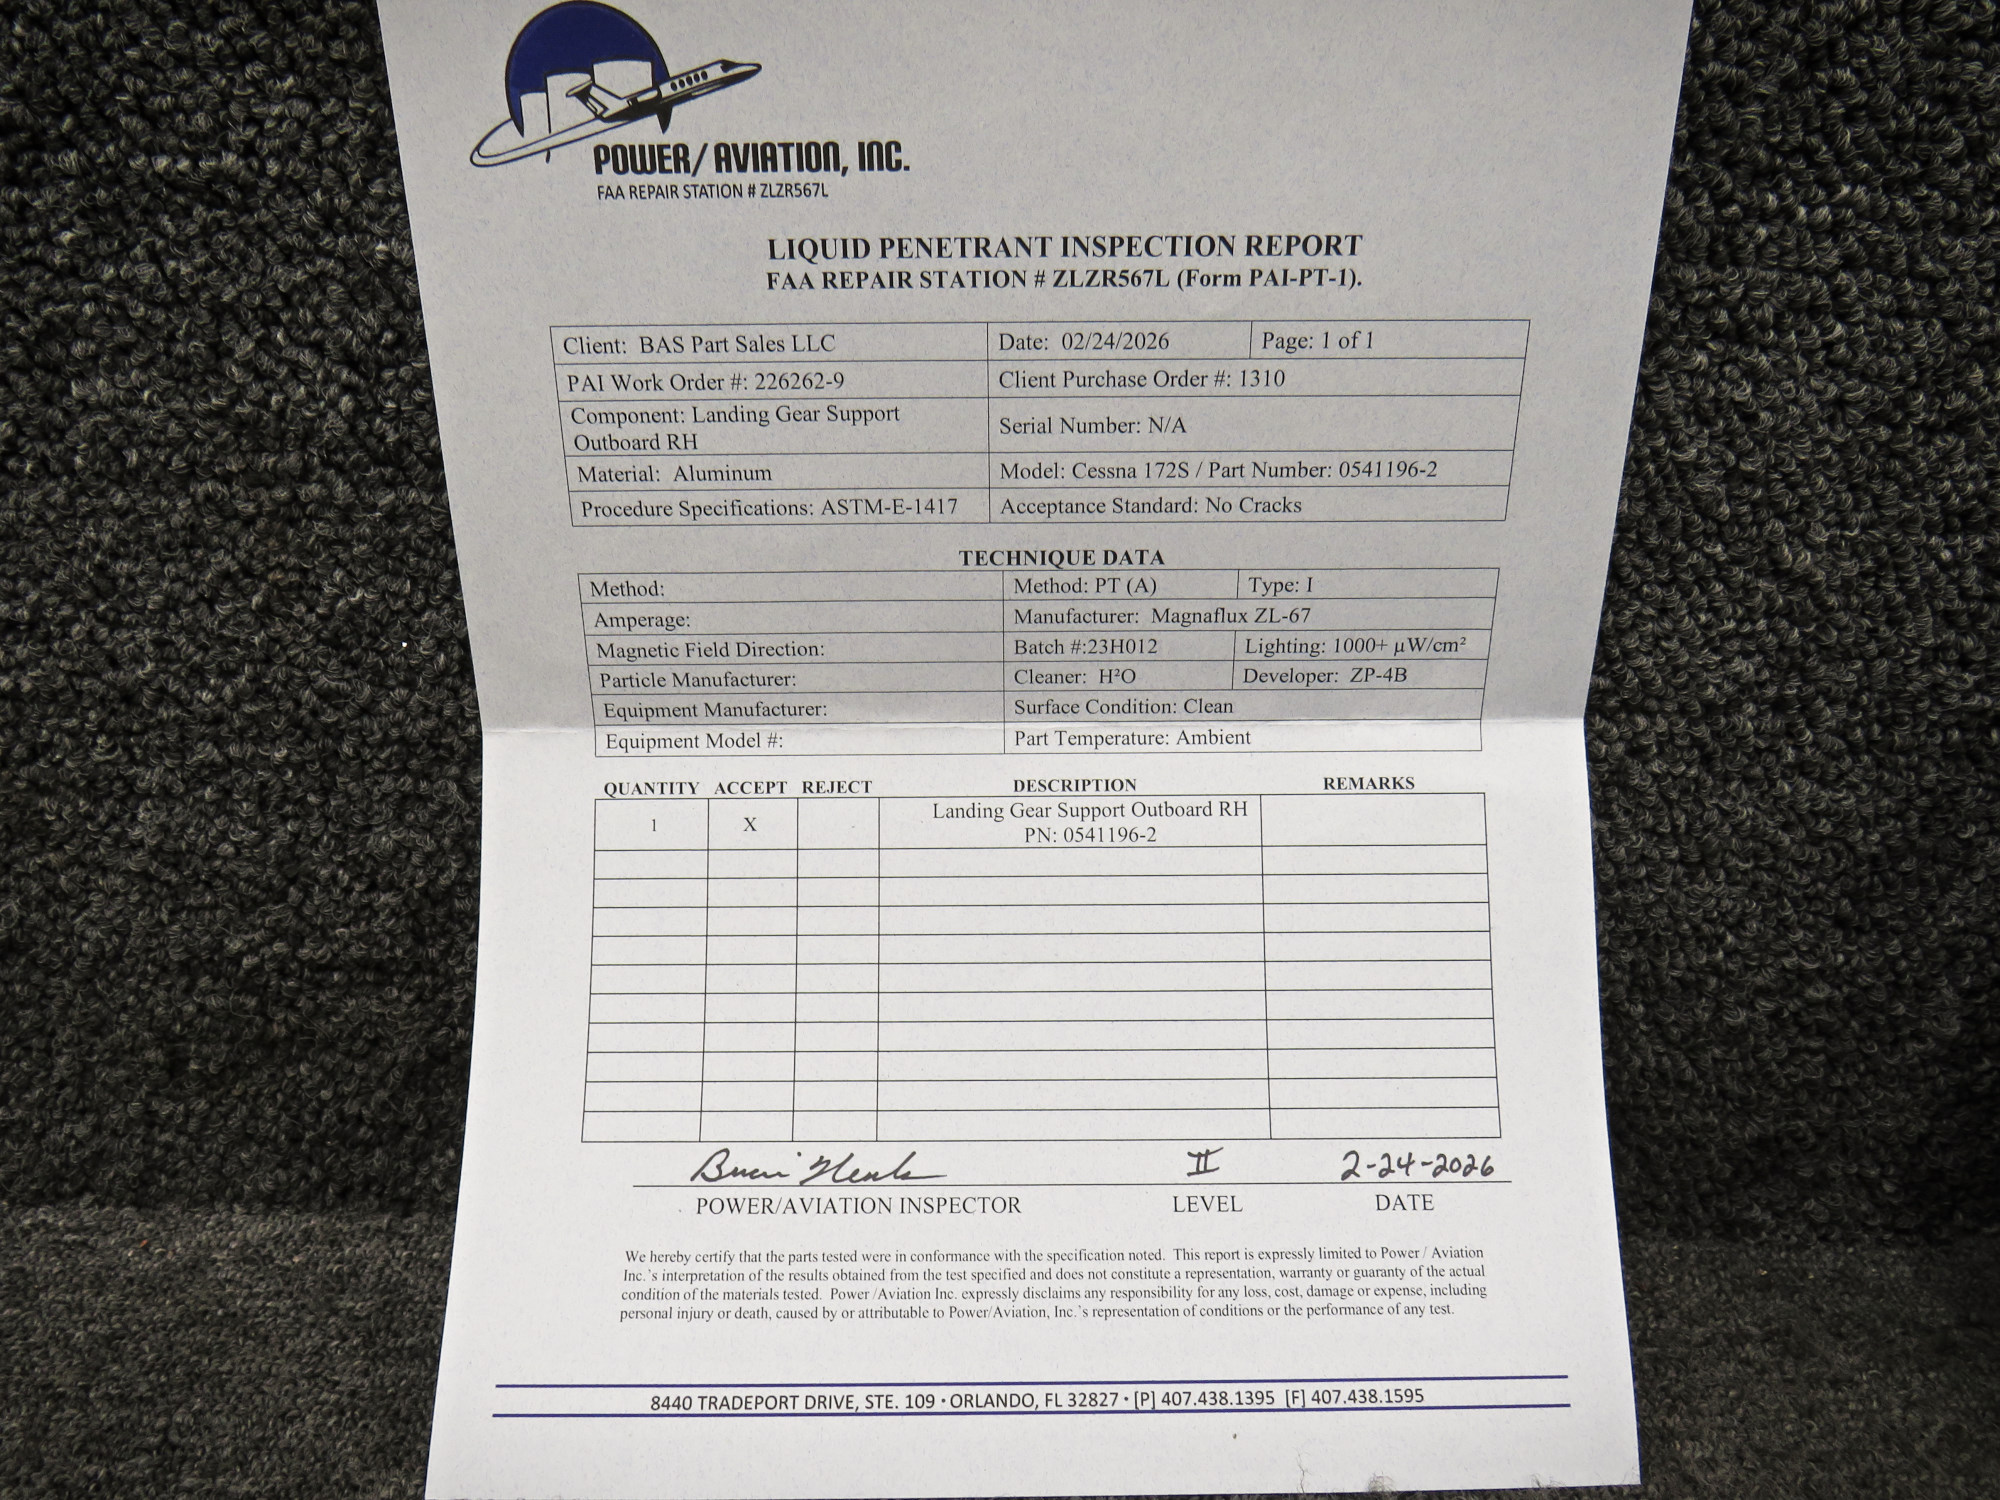 POWER/AVIATION, INC.
FAA REPAIR STATION # ZLZR567L
LIQUID PENETRANT INSPECTION REPORT
FAA REPAIR STATION # ZLZR567L (Form PAI-PT-1).
Client: BAS Part Sales LLC Date: 02/24/2026 Page: 1 of 1
PAI Work Order #: 226262-9 Client Purchase Order #: 1310
Component: Landing Gear Support
Outboard RH Serial Number: N/A
Material: Aluminum Model: Cessna 172S / Part Number: 0541196-2
Procedure Specifications: ASTM-E-1417 Acceptance Standard: No Cracks
TECHNIQUE DATA
Method: Method: PT (A) Type: I
Amperage: Manufacturer: Magnaflux ZL-67
Magnetic Field Direction: Batch #:23H012 Lighting: 1000+ µW/cm²
Particle Manufacturer: Cleaner: H²O Developer: ZP-4B
Equipment Manufacturer: Surface Condition: Clean
Equipment Model #: Part Temperature: Ambient
QUANTITY ACCEPT REJECT DESCRIPTION REMARKS
1 X Landing Gear Support Outboard RH
PN: 0541196-2
II 2-24-2026
POWER/AVIATION INSPECTOR LEVEL DATE
We hereby certify that the parts tested were in conformance with the specification noted. This report is expressly limited to Power / Aviation
Inc.'s interpretation of the results obtained from the test specified and does not constitute a representation, warranty or guaranty of the actual
condition of the materials tested. Power /Aviation Inc. expressly disclaims any responsibility for any loss, cost, damage or expense, including
personal injury or death, caused by or attributable to Power/Aviation, Inc.'s representation of conditions or the performance of any test.
8440 TRADEPORT DRIVE, STE. 109 · ORLANDO, FL 32827 · [P] 407.438.1395 [F] 407.438.1595